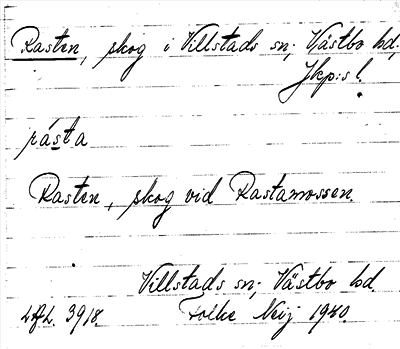 Rasten, skog i Villstads sn; Västbo hd,
Jkp:s l.
rásta
Rasten, skog vid Rastamossen.
Villstads sn; Västbo hd.
Folke Neij 1940.